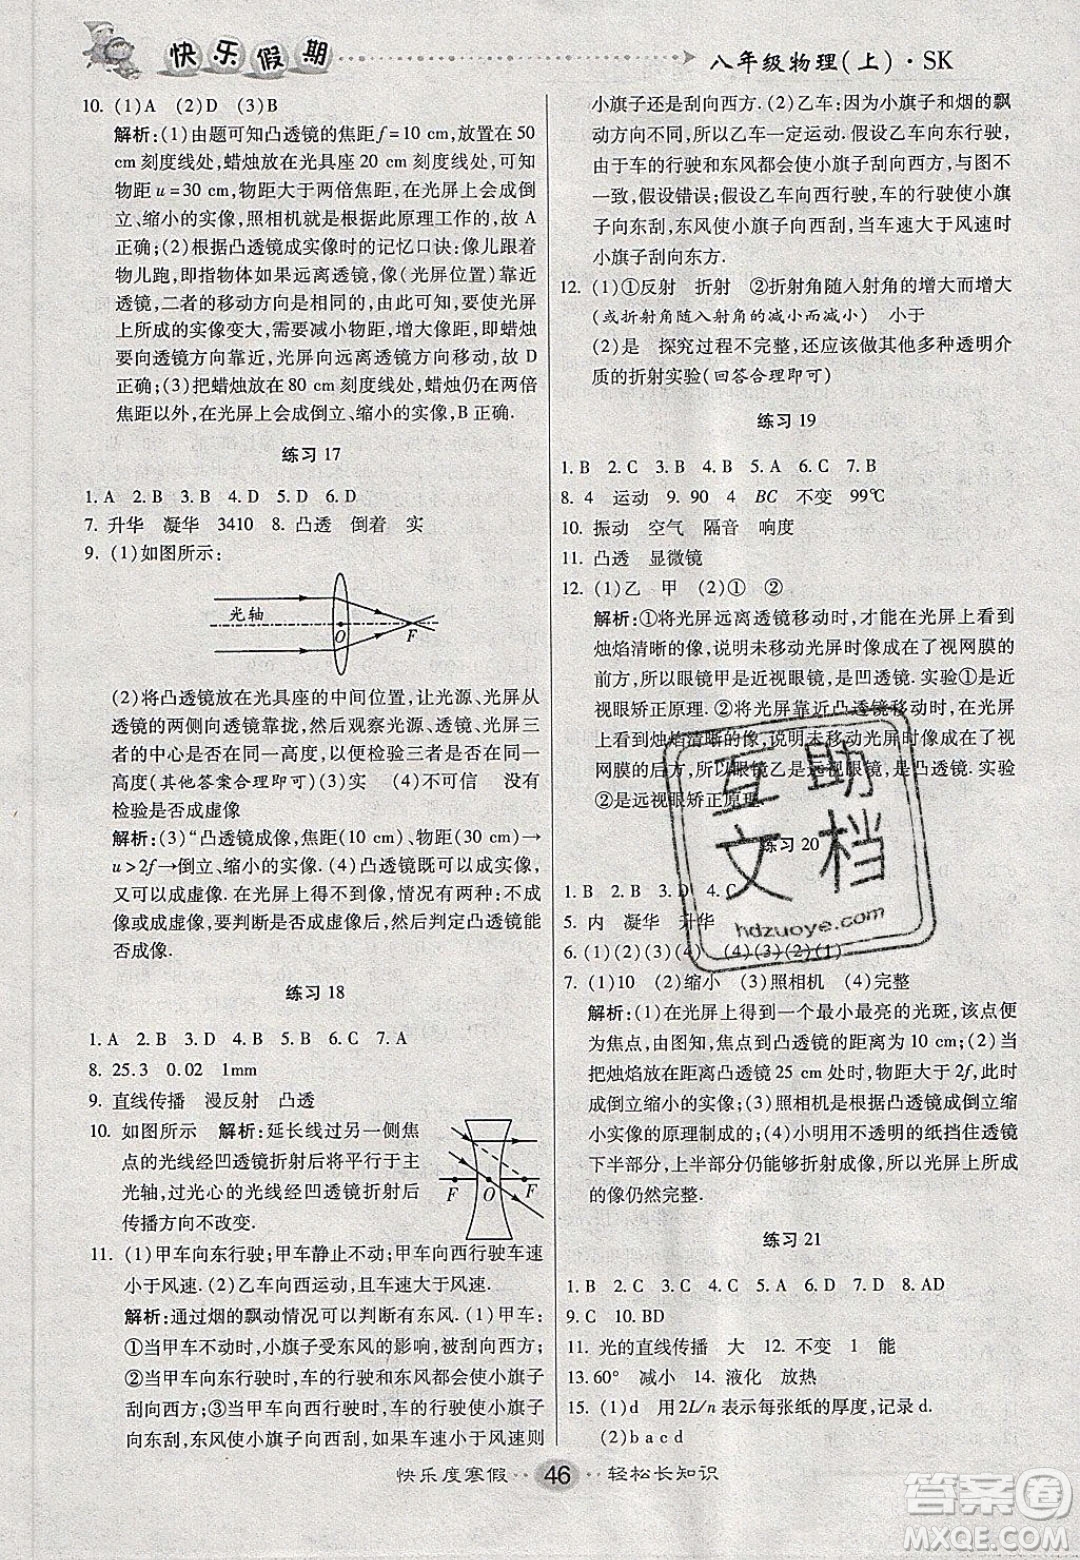 快乐假期
八年级物理(上)·SK
10. (1)A (2)D (3)B
解析:(1)由题可知凸透镜的焦距f=10 cm,放置在50
cm刻度线处,蜡烛放在光具座20 cm刻度线处,可知
物距u=30 cm,物距大于两倍焦距,在光屏上会成倒
立、缩小的实像,照相机就是根据此原理工作的,故A
正确;(2)根据凸透镜成实像时的记忆口诀:像儿跟着
物儿跑,即指物体如果远离透镜,像(光屏)会靠近
透镜,二者的移动方向是相同的,由此可知,要使光屏
上所成的实像变大,需要减小物距,增大像距,即蜡烛
要向透镜方向靠近,光屏向远离透镜方向移动,故D
正确;(3)把蜡烛放在80 cm刻度线处,蜡烛仍在两倍
焦距以外,在光屏上会成倒立、缩小的实像,B正确.
练习17
1. A 2. B 3. B 4. D 5. D 6. D
7. 升华 凝华 3410 8. 凸透 倒着 实
9. (1)如图所示:
光轴
O
F
(2)将凸透镜放在光具座的中间位置,让光源、光屏从
透镜的两侧向透镜靠拢,然后观察光源、透镜、光屏三
者的中心是否在同一高度,以便检验三者是否在同一
高度(其他答案合理即可) (3)实 (4)不可信 没有
检验是否成虚像
解析:(3)“凸透镜成像,焦距(10 cm)、物距(30 cm)→
u>2f→倒立、缩小的实像.(4)凸透镜既可以成实像,
又可以成虚像.在光屏上得不到像,情况有两种:不成
像或成虚像,要判断是否成虚像后,才能判定凸透镜能
否成像.
练习18
1. A 2. B 3. D 4. C 5. B 6. C 7. A
8. 25.3 0.02 1mm
9. 直线传播 漫反射 凸透
10. 如图所示 解析:延长线过另一侧焦
点的光线经凹透镜折射后将平行于主
光轴,过光心的光线经凹透镜折射后
传播方向不改变.
F O F
11. (1)甲车向东行驶;甲车静止不动;甲车向西行驶车速
小于风速.(2)乙车向西运动,且车速大于风速.
解析:通过烟的飘动情况可以判断有东风.(1)甲车:
①当甲车静止时,小旗子受东风的影响,刮向西方;
②当甲车向东行驶时,车的行驶和东风都会使小旗子
刮向西方;③当甲车向西行驶时,车的行驶使小旗子刮
向东方,东风使小旗子向西刮,如果车速小于风速则
小旗子还是刮向西方.(2)乙车:因为小旗子和烟的飘
动方向不同,所以乙车一定运动.假设乙车向东行驶,
由于车的行驶和东风都会使小旗子刮向西方,与图不
一致,假设错误;假设乙车向西行驶,车的行驶使小旗
子向东刮,东风使小旗子向西刮,当车速大于风速时
小旗子刮向东方.
12. (1)①反射 折射 ②折射角随入射角的增大而增大
(或折射角随入射角的减小而减小) 小于
(2)是 探究过程不完整,还应该做其他多种透明介
质的折射实验(回答合理即可)
练习19
1. B 2. C 3. B 4. B 5. A 6. C 7. B
8. 4 运动 9. 90 4 BC 不变 99℃
10. 振动 空气 隔音 响度
11. 凸透 显微镜
12. (1)乙 甲 (2)① ②
解析:①将光屏远离透镜移动时,才能在光屏上看到
烛焰清晰的像,说明未移动光屏时像成在了视网膜的
前方,所以眼镜甲是近视眼镜,是凹透镜.实验①是近
视眼矫正原理.②将光屏靠近凸透镜移动时,在光屏
上看到烛焰清晰的像,说明未移动光屏时像成在了视
网膜的后方,所以眼镜乙是远视眼镜,是凸透镜.实验
②是远视眼矫正原理.
练习20
1. B 2. B 3. D 4. C
5. 内 凝华 升华
6. (1)(2)(3)(4) (4)(3)(2)(1)
7. (1)10 (2)缩小 (3)照相机 (4)完整
解析:(1)在光屏上得到一个最小最亮的光斑,该点便
为焦点,由图知,焦点到凸透镜的距离为10 cm;(2)当
把烛焰放在距离凸透镜25 cm处时,物距大于2f,此
时成倒立缩小的实像;(3)照相机是根据凸透镜成倒立缩
小实像的原理制成的;(4)小明用不透明的纸挡住透镜
下半部分,上半部分仍能够折射成像,所以光屏上所成
的像仍然完整.
练习21
1. B 2. C 3. C 4. D 5. A 6. D 7. D 8. AD
9. C 10. BD
11. 光的直线传播 大 12. 不变 1 能
13. 60° 减小 14. 液化 放热
15. (1)d 用2L/n表示每张纸的厚度,记录d.
(2)b a c d
互助
文档
hdzuoye.com
快乐度寒假 ·· 46 ·· 轻松长知识
答案圈
MXQE.COM